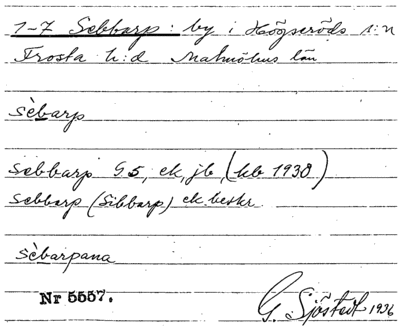 1-7 Sebbarp: by i Högseröds s:n
Frosta h:d Malmöhus län
sèbarp
sebbarp G5, ek, jb, (kb 1930)
sebbarp (Sibbarp) ek. beskr.
sèbarpana
Nr 5557.
G. Sjöstedt 1936